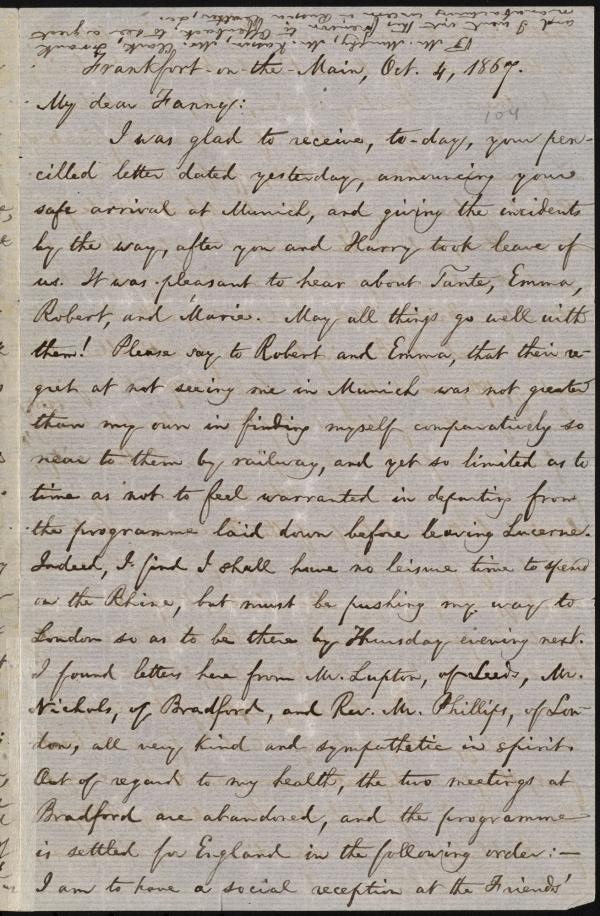 Frankfort-on-the-Main, Oct. 4, 1867.
104
My dear Fanny:
I was glad to receive, to-day, your pen-
cilled letter dated yesterday, announcing your
safe arrival at Munich, and giving the incidents
by the way, after you and Harry took leave of
us. It was pleasant to hear about Tante, Emma,
Robert, and Marie. May all things go well with
them! Please say to Robert and Emma, that their re-
gret at not seeing me in Munich was not greater
than my own in finding myself comparatively so
near to them by railway, and yet so limited as to
time as not to feel warranted in departing from
the programme laid down before leaving Lucerne.
Indeed, I find I shall have no leisure time to spend
on the Rhine, but must be pushing my way to
London so as to be there by Thursday evening next.
I found letters here from Mr. Lupton, of Leeds, Mr.
Nichols, of Bradford, and Rev. Mr. Phillips, of Lon-
don, all very kind and sympathetic in spirit.
Out of regard to my health, the two meetings at
Bradford are abandoned, and the programme
is settled for England in the following order:—
I am to have a social reception at the Friends'